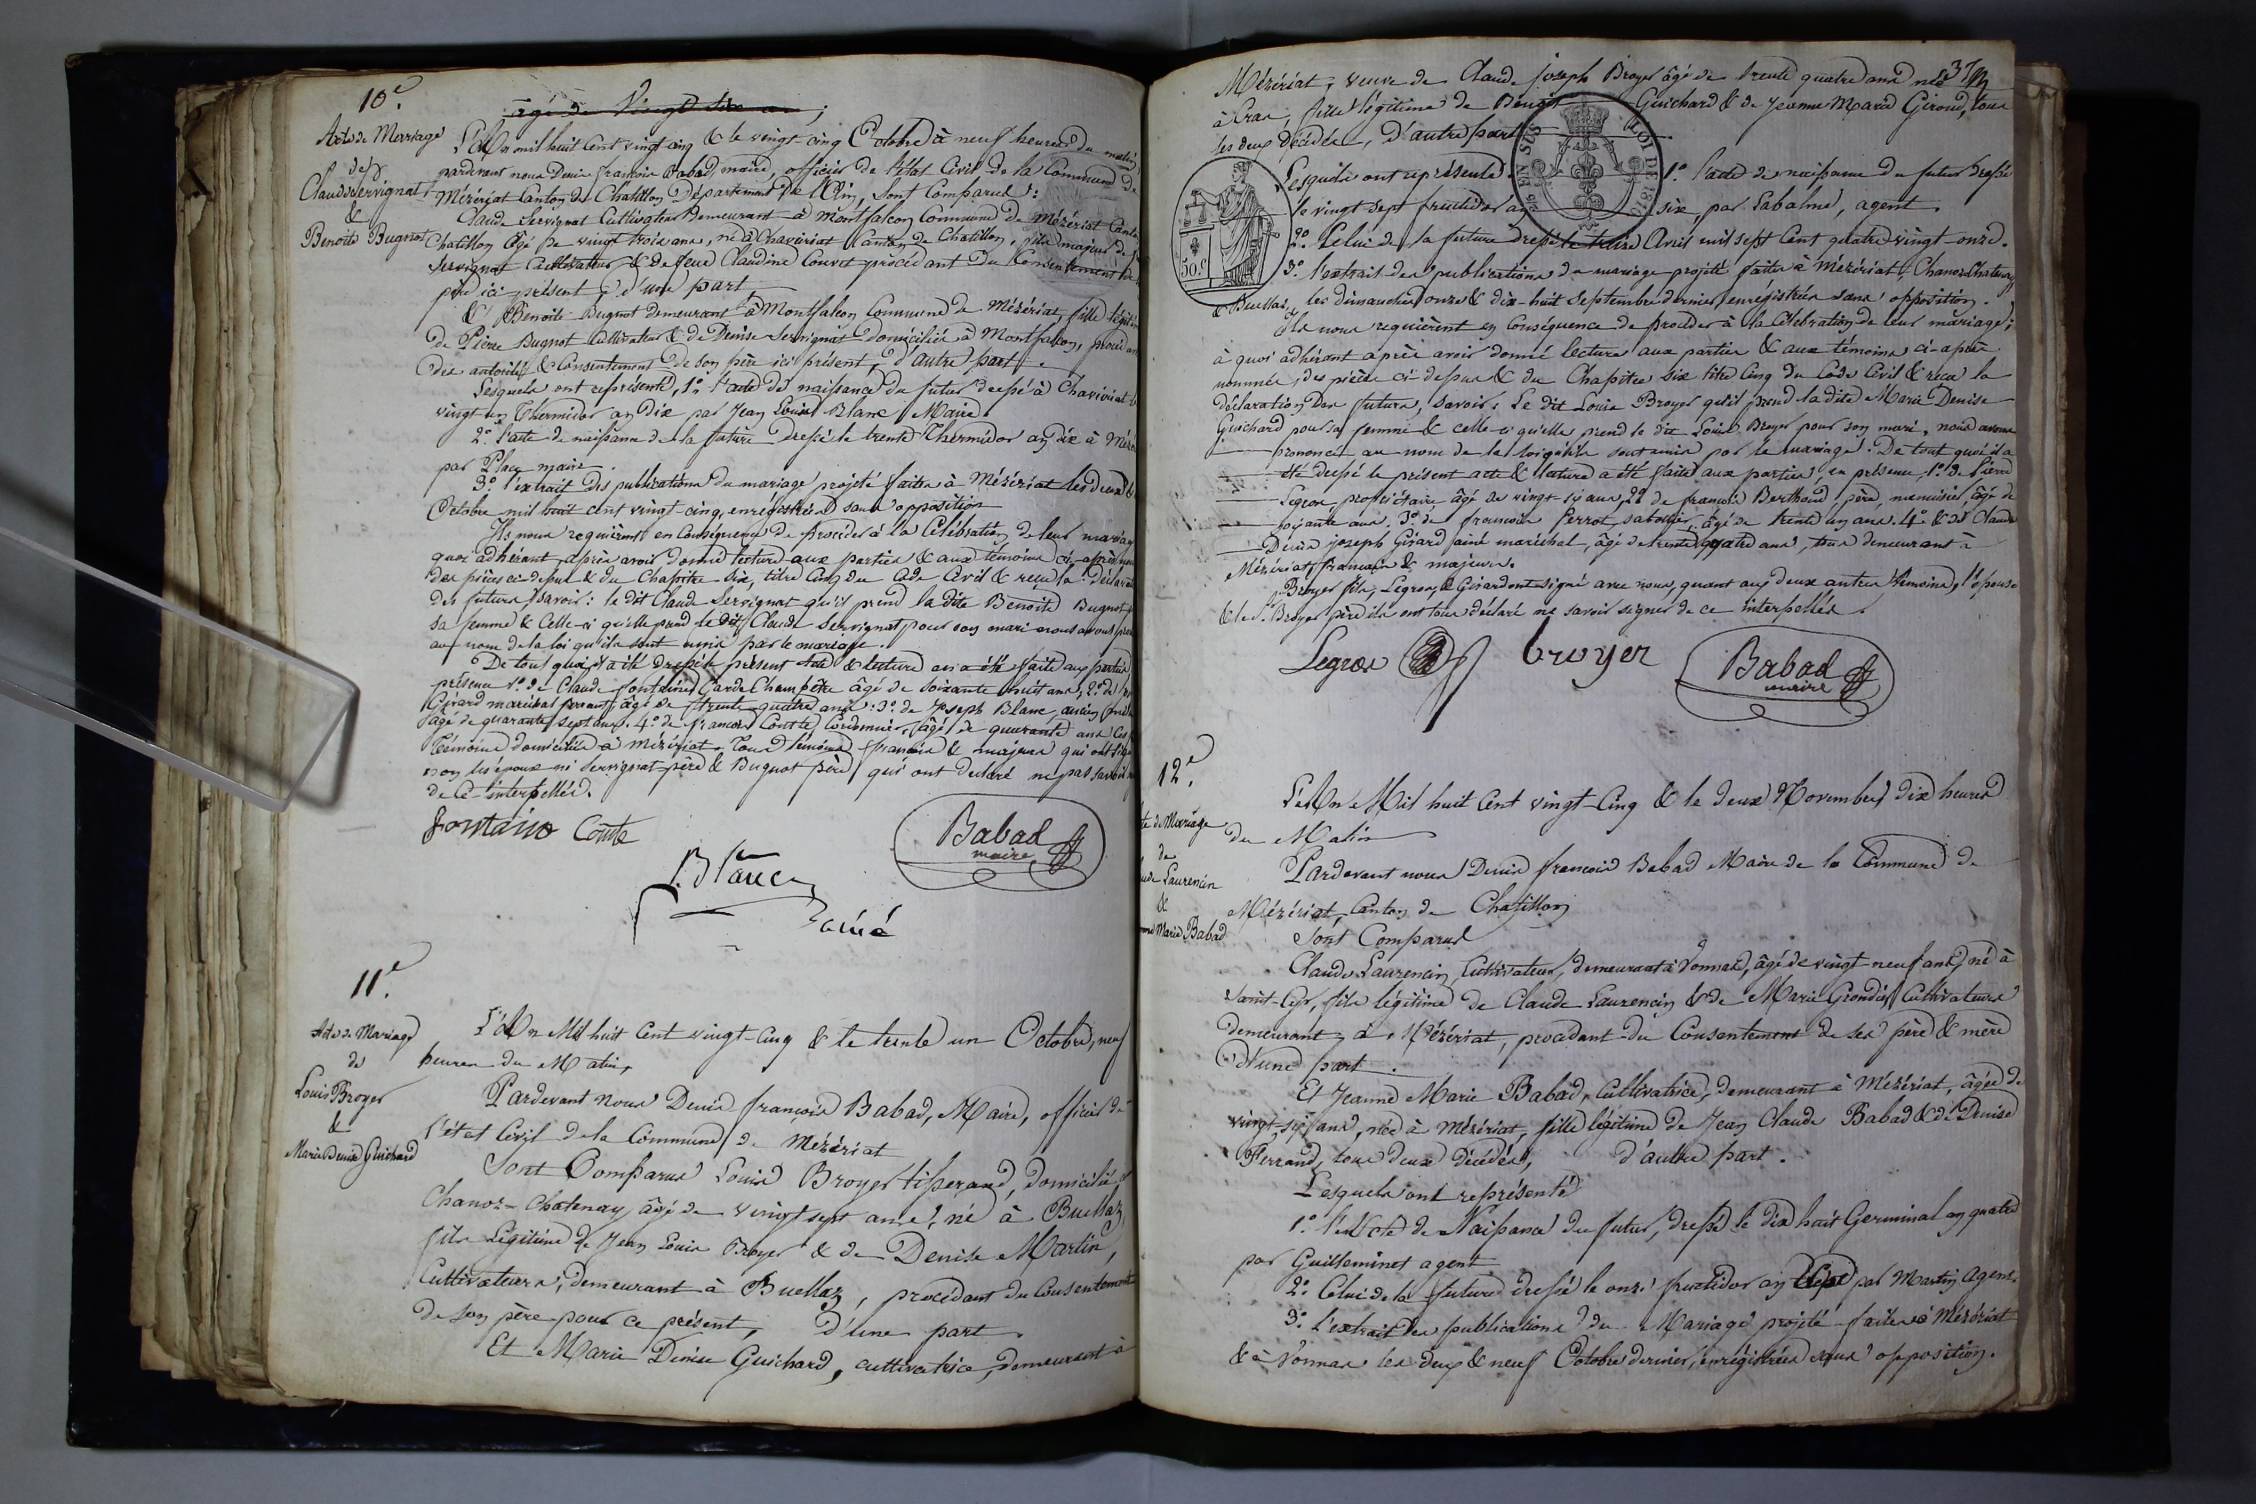 10e.
âgé de Vingt six a ;
Acte de Mariage
des
Claude Servignat
&
Benoite Bugnot
L'An mil huit Cent vingt cinq & le vingt cinq Octobre à neuf heures du matin
pardevant nous Denis françois Babad, maire, officier de l'état Civil de la Commune de
Mézériat Canton de Chatillon Département de l'Ain, sont Comparus :
Claude Servignat Cultivateur demeurant à Montfalcon Commune de Mézériat Canton
Chatillon âgé de vingt trois ans, né à Chaveriat Canton de Chatillon, fils majeur de
Servignat Cultivateur & de feue Claudine Couvet procédant du Consentement
père ici présent, d'une part,
Et Benoite Bugnot demeurant à Montfalcon Commune de Mézériat, fille légitime
de Pierre Bugnot Cultivateur & de Denise Servignat Domiciliés à Montfalcon, procédant
des autorité & Consentement de son père ici présent, d'autre part.
Lesquels ont représenté, 1o. l'acte de naissance du futur dressé à Chaveriat le
vingt un Thermidor an dix par Jean Louis Blanc Maire.
2o. l'acte de naissance de la future dressé le trente Thermidor an dix à Mézé
par Place maire.
3o. l'extrait des publications du mariage projeté faites à Mézériat les deux &
Octobre mil huit cent vingt cinq, enrégistrées sans opposition
Ils nous requièrent en Conséquence de procéder à la Célébration de leur mariage
quoi adhérant après avoir donné lecture aux parties & aux témoins ci-après
des pièces ci-dessus & du Chapitre six, titre Cinq du Code Civil & reçu la déclaration
des futurs, savoir : le dit Claude Servignat qu'il prend la dite Benoite Bugnot
sa femme & Celle-ci qu'elle prend le dit Claude Servignat pour son mari nous avons
au nom de la loi qu'ils sont unis par le mariage.
De tout quoi a été dressé le présent Acte & lecture en a été faite aux parties
présence 1o. de Claude fontaine Garde Champêtre âgé de soixante huit ans, 2o. de
Girard maréchal ferrant, âgé de trente quatre ans : 3o. de Joseph Blanc, ancien
âgé de quarante sept ans. 4o. de françois Comte, Cordonnier, âgé de quarante ans
témoins domiciliés à Mézériat, tous témoins français & majeurs qui ont signé
non les époux ni Servignat père & Bugnot père qui ont déclaré ne pas savoir
de Ce interpellés.
fontaine Comte
Babad
maire
J. Blanc
11e.
Acte de Mariage
de
Louis Broyer
&
Marie Denise Guichard
L'An Mil huit Cent vingt-Cinq & le trente un Octobre, neuf
heures du Matin,
Pardevant nous Denis françois Babad, Maire, officier de
l'état Civil de la Commune de Mézériat
Sont Comparus Louis Broyer tisserand, domicilié à
Chanoz-Chatenay, âgé de vingt sept ans, né à Buellaz,
fils légitime de Jean Louis Broyer & de Denise Martin,
Cultivateurs, demeurant à Buellaz, procédant du Consentement
de son père pour ce présent, d'une part.
Et Marie Denise Guichard, cultivatrice, demeurant à
Mézériat, veuve de Claude Joseph Broyer âgé de trente quatre ans née
à Cras, fille légitime de Benoit Guichard & de Jeanne Marie Giroud, tous
les deux Décédés, d'autre part.
EN SUS
ROI DE
50.c
Lesquels ont représenté. 1o. l'acte de naissance du futur dressé
le vingt sept fructidor an six, par Labalme, agent.
2o. Celui de la future dressé le treize Avril mil sept Cent quatre vingt onze.
3o. l'extrait des publications du mariage projeté faites à Mézériat, Chanoz Chatenay
& Buellaz, les dimanches onze & dix-huit Septembre dernier enrégistrées sans opposition.
Ils nous requièrent en Conséquence de procéder à la Célébration de leur mariage ;
à quoi adhérant après avoir donné lecture aux parties & aux témoins ci-après
nommés, des pièces ci-dessus & du Chapitre six titre Cinq du Code Civil & reçu la
déclaration des futurs, savoir : Le dit Louis Broyer qu'il prend la dite Marie Denise
Guichard pour sa femme & celle-ci qu'elle prend le dit Louis Broyer pour son mari, nous avons
prononcé au nom de la loi qu'ils sont unis par le mariage. De tout quoi il a
été dressé le présent acte & lecture a été faite aux parties, en présence, 1o. de Pierre
Legros, propriétaire, âgé de vingt-six ans, 2o. de françois Berthoud père, menuisier, âgé de
soixante ans. 3o. de françois Perrot sabotier, âgé de trente un ans. 4o. & de Claude
Denis joseph Girard ainé maréchal, âgé de trente quatre ans, tous demeurant à
Mézériat, français & majeurs.
Broyer fils, Legros, & Girard ont signé avec nous, quant aux deux autres témoins, l'épouse
& le S. Broyer père ils ont tous déclaré ne savoir signer de ce interpellés.
Legros broyer Babad
maire
12e.
Acte de Mariage
de
Claude Laurencin
&
Jeanne Marie Babad
L'An Mil huit Cent vingt-Cinq & le deux Novembre, dix heures
du Matin
Pardevant nous Denis françois Babad Maire de la Commune de
Mézériat, Canton de Chatillon
Sont Comparus
Claude Laurencin, Cultivateur, demeurant à Vonnas, âgé de vingt neuf ans, né à
Saint-Cyr, fils légitime de Claude Laurencin & de Marie Grondu, Cultivateurs
demeurant à Mézériat, procédant du Consentement de ses père & mère
D'une part.
Et Jeanne Marie Babad, Cultivatrice, demeurant à Mézériat, âgée de
vingt-six ans, née à Mézériat, fille légitime de Jean Claude Babad & de Denise
Ferrand, tous deux Décédés, d'autre part.
Lesquels ont représenté
1o. l'Acte de Naissance du futur, dressé le dix huit Germinal an quatre
par Guilleminet agent
2o. Celui de la future dressé le onze fructidor an sept par Martin Agent.
3o. l'extrait des publications du Mariage projeté faites à Mézériat
& à Vonnas les deux & neuf Octobre dernier, enrégistrées sans opposition.